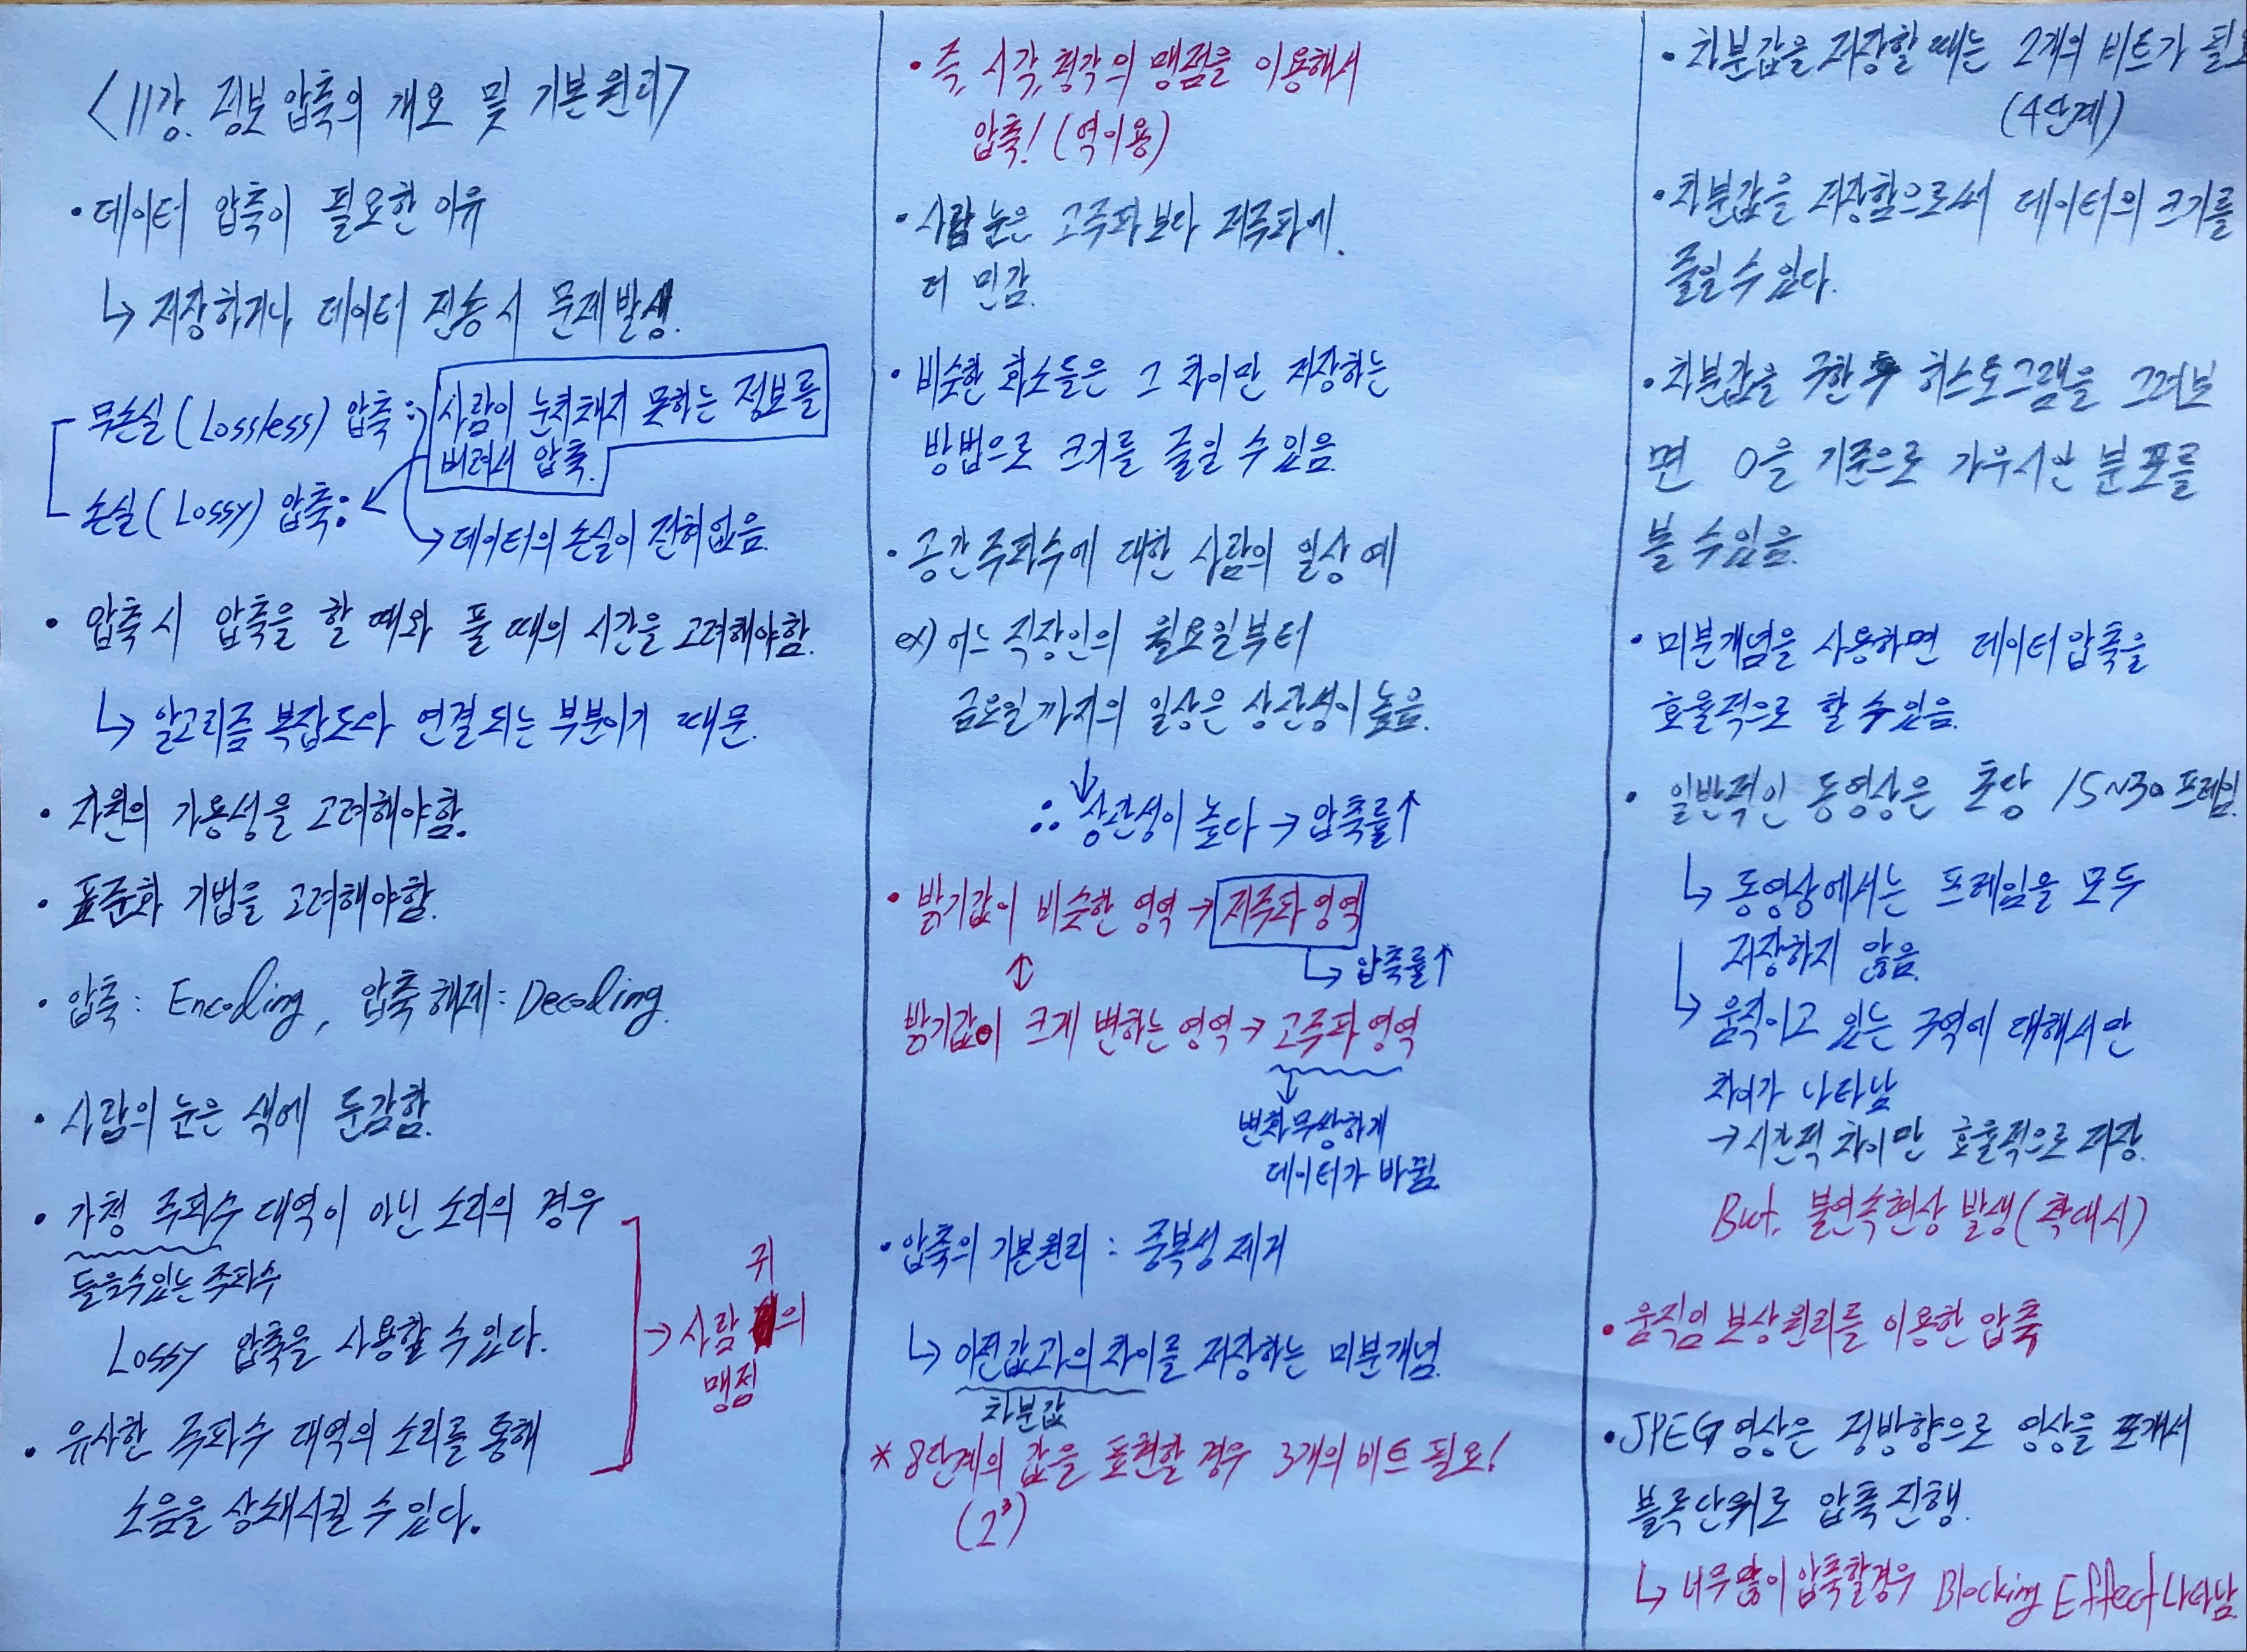 <11강. 정보 압축의 개요 및 기본원리>
• 데이터 압축이 필요한 이유
↳ 저장하거나 데이터 전송 시 문제발생.
무손실(Lossless) 압축: 사람이 눈치채지 못하는 정보를
버려서 압축.
손실(Lossy) 압축:
→ 데이터의 손실이 전혀없음.
• 압축 시 압축을 할 때와 풀 때의 시간을 고려해야함.
↳ 알고리즘 복잡도와 연결되는 부분이기 때문.
• 자원의 가용성을 고려해야함.
• 표준화 기법을 고려해야함.
• 압축: Encoding, 압축 해제: Decoding.
• 사람의 눈은 색에 둔감함.
• 가청 주파수 대역이 아닌 소리의 경우
들을수있는 주파수
Lossy 압축을 사용할 수 있다.
• 유사한 주파수 대역의 소리를 통해
소음을 상쇄시킬 수 있다.
귀
→ 사람의
맹점
• 즉, 시각, 청각의 맹점을 이용해서
압축! (역이용)
• 사람 눈은 고주파보다 저주파에
더 민감.
• 비슷한 화소들은 그 차이만 저장하는
방법으로 크기를 줄일 수 있음.
• 공간주파수에 대한 사람의 일상 예
ex) 어느 직장인의 월요일부터
금요일까지의 일상은 상관성이 높음.
↓
∴ 상관성이 높다 → 압축률↑
• 밝기값이 비슷한 영역 → 저주파 영역
↳ 압축률↑
↕
밝기값이 크게 변하는 영역 → 고주파 영역
↓
변화무쌍하게
데이터가 바뀜.
• 압축의 기본원리 : 중복성 제거
↳ 이전값과의 차이를 저장하는 미분개념.
차분값
* 8단계의 값을 표현할 경우 3개의 비트 필요!
(2³)
• 차분값을 저장할 때는 2개의 비트가 필요
(4단계)
• 차분값을 저장함으로써 데이터의 크기를
줄일 수 있다.
• 차분값을 구한 후 히스토그램을 그려보
면 0을 기준으로 가우시안 분포를
볼 수 있음.
• 미분개념을 사용하면 데이터 압축을
효율적으로 할 수 있음.
• 일반적인 동영상은 초당 15~30 프레임.
↳ 동영상에서는 프레임을 모두
저장하지 않음.
↳ 움직이고 있는 구역에 대해서만
차이가 나타남
→ 시간적 차이만 효율적으로 저장.
But, 불연속현상 발생(확대시)
• 움직임 보상원리를 이용한 압축
• JPEG 영상은 정방향으로 영상을 쪼개서
블록단위로 압축진행.
↳ 너무많이 압축할경우 Blocking Effect 나타남.